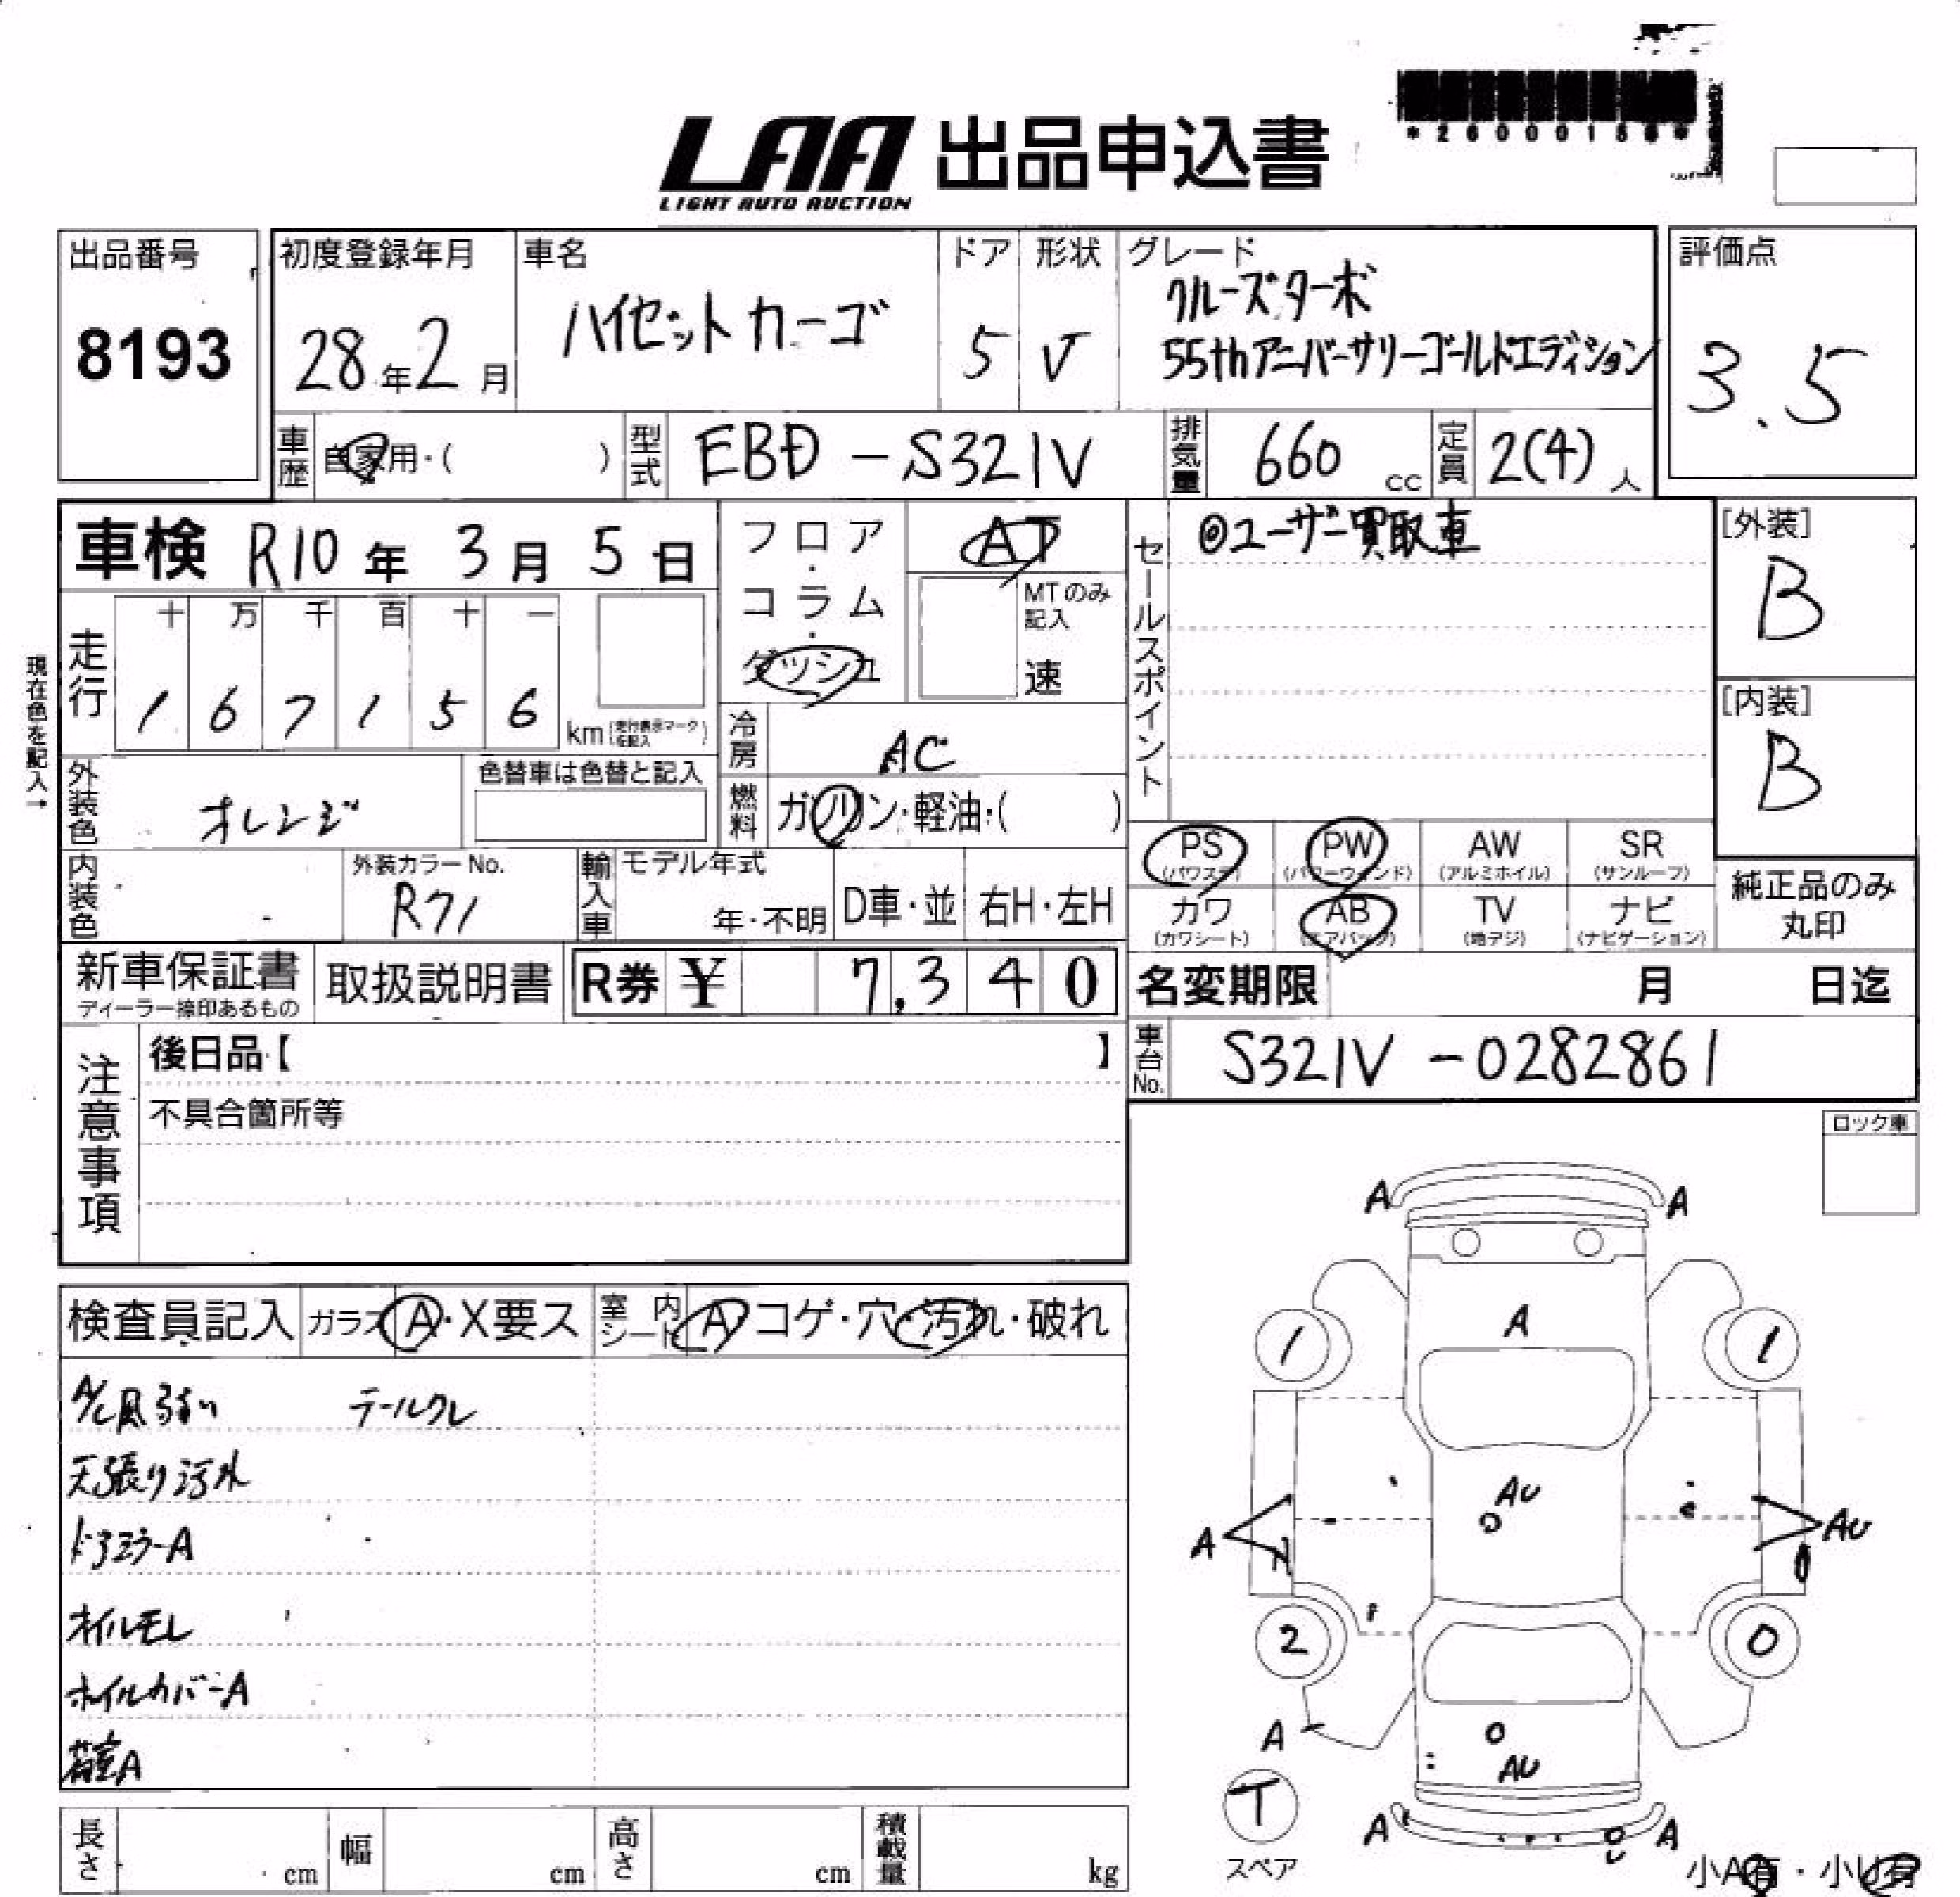 LAA 出品申込書
LIGHT AUTO AUCTION
出品番号
8193
初度登録年月
28年2月
車名
ハイゼットカーゴ
ドア
5
形状
V
グレード
クルーズターボ
55thアニバーサリーゴールドエディション
評価点
3.5
車歴
自家用・( )
型式
EBD-S321V
排気量
660 cc
定員
2(4)人
車検 R10年 3月 5日
フロア・コラム・ダッシュ
AT
MTのみ記入
速
セールスポイント
◎ユーザー買取車
[外装]
B
[内装]
B
現在色を記入→
走行
十 万 千 百 十 一
1 6 7 1 5 6 km (走行表示マークを記入)
冷房
AC
外装色
オレンジ
色替車は色替と記入
燃料
ガソリン・軽油・( )
PS (パワステ)
PW (パワーウィンド)
AW (アルミホイル)
SR (サンルーフ)
カワ (カワシート)
AB (エアバッグ)
TV (地デジ)
ナビ (ナビゲーション)
純正品のみ丸印
内装色
外装カラーNo.
R71
輸入車
モデル年式
年・不明
D車・並
右H・左H
新車保証書
ディーラー捺印あるもの
取扱説明書
R券 ¥ 7,340
名変期限 月 日迄
注意事項
後日品【 】
不具合箇所等
車台No.
S321V-0282861
ロック車
検査員記入
ガラス A・X要ス
室内シート A コゲ・穴・汚れ・破れ
A/C風弱い テールワレ
天張り汚れ
ドアミラーA
オイルモレ
ホイルカバーA
荷室A
A A
1 A 1
AU
A AU
2 0
A
AU
T
スペア
A A
小A有・小U有
長さ cm
幅 cm
高さ cm
積載量 kg